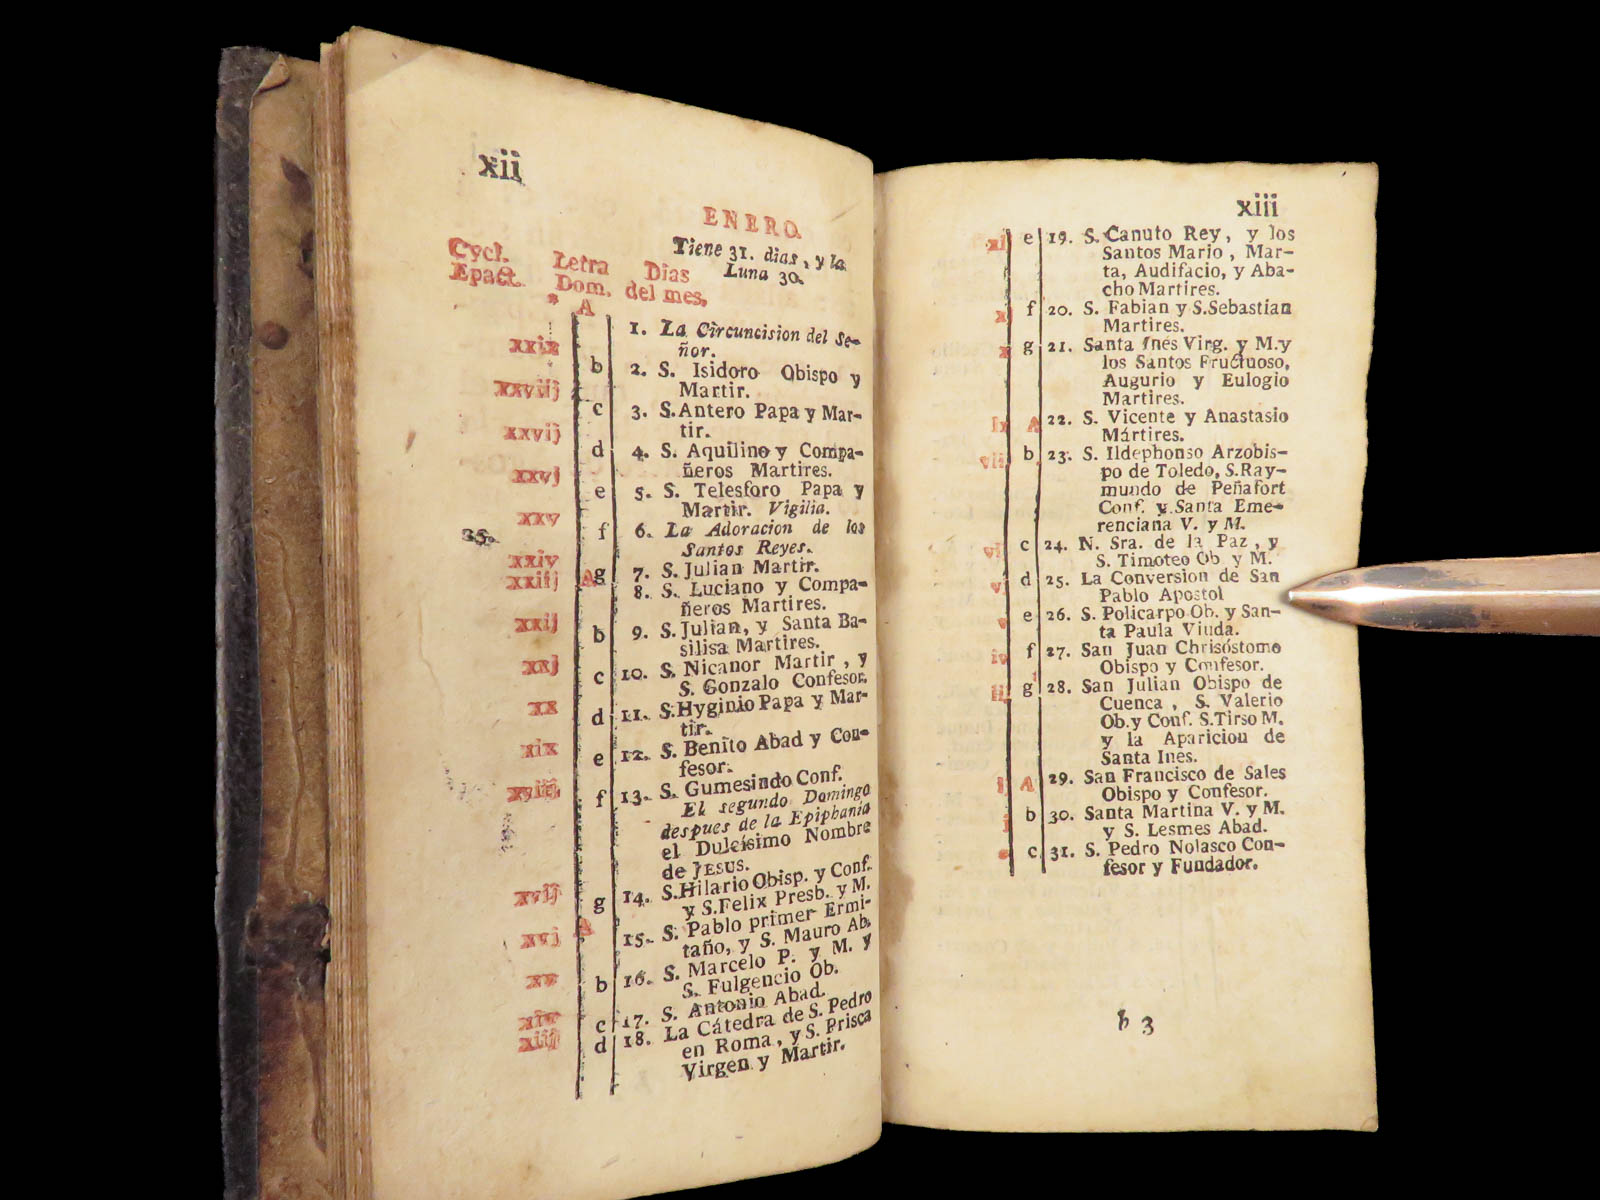 xii
ENERO.
Tiene 31. dias, y la
Luna 30.
Cycl. Letra Dias
Epact. Dom. del mes.
* A 1. La Circuncision del Se-
ñor.
xxix b 2. S. Isidoro Obispo y
Martir.
xxviij c 3. S. Antero Papa y Mar-
tir.
xxvij d 4. S. Aquilino y Compa-
ñeros Martires.
xxvj e 5. S. Telesforo Papa y
Martir. Vigilia.
xxv 25. f 6. La Adoracion de los
Santos Reyes.
xxiv g 7. S. Julian Martir.
xxiij A 8. S. Luciano y Compa-
ñeros Martires.
xxij b 9. S. Julian, y Santa Ba-
silisa Martires.
xxj c 10. S. Nicanor Martir, y
S. Gonzalo Confesor.
xx d 11. S. Hyginio Papa y Mar-
tir.
xix e 12. S. Benito Abad y Con-
fesor.
xviij f 13. S. Gumesindo Conf.
El segundo Domingo
despues de la Epiphania
el Dulcísimo Nombre
de JESUS.
xvij g 14. S. Hilario Obisp. y Conf.
y S. Felix Presb. y M.
xvj A 15. S. Pablo primer Ermi-
taño, y S. Mauro Ab.
xv b 16. S. Marcelo P. y M. y
S. Fulgencio Ob.
xiv c 17. S. Antonio Abad.
xiij d 18. La Cátedra de S. Pedro
en Roma, y S. Prisca
Virgen y Martir.
xiii
e 19. S. Canuto Rey, y los
Santos Mario, Mar-
ta, Audifacio, y Aba-
cho Martires.
f 20. S. Fabian y S. Sebastian
Martires.
x g 21. Santa Inés Virg. y M. y
los Santos Fructuoso,
Augurio y Eulogio
Martires.
ix A 22. S. Vicente y Anastasio
Mártires.
b 23. S. Ildephonso Arzobis-
po de Toledo, S. Ray-
mundo de Peñafort
Conf. y Santa Eme-
renciana V. y M.
c 24. N. Sra. de la Paz, y
S. Timoteo Ob. y M.
d 25. La Conversion de San
Pablo Apostol
e 26. S. Policarpo Ob. y San-
ta Paula Viuda.
iv f 27. San Juan Chrisóstomo
Obispo y Confesor.
g 28. San Julian Obispo de
Cuenca, S. Valerio
Ob. y Conf. S. Tirso M.
y la Aparicion de
Santa Ines.
A 29. San Francisco de Sales
Obispo y Confesor.
b 30. Santa Martina V. y M.
y S. Lesmes Abad.
* c 31. S. Pedro Nolasco Con-
fesor y Fundador.
b 3